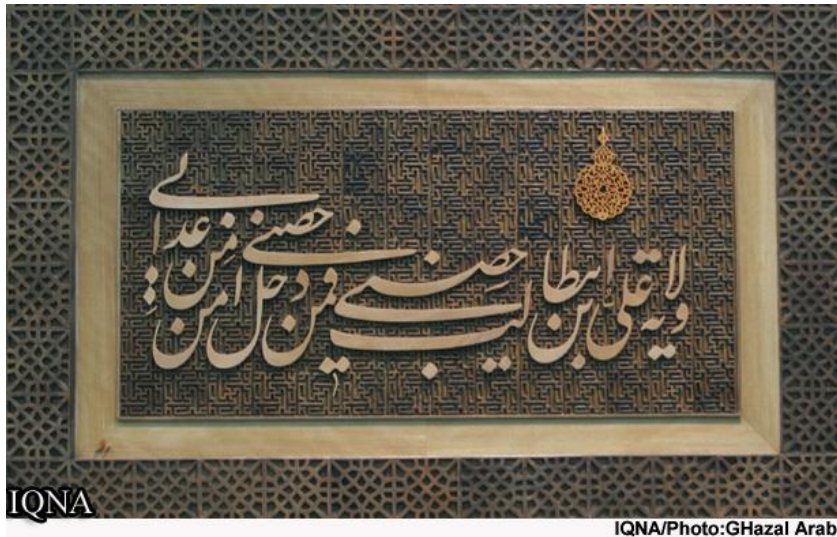 ولایة علی بن ابیطالب حصنی فمن دخل حصنی امن من عذابی
IQNA
IQNA/Photo:GHazal Arab